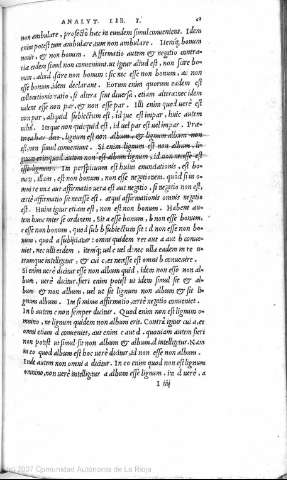 ANALYT. LIB. I.
non ambulare, profectò hæc in eundem simul conuenient. Idem
enim potest tum ambulare tum non ambulare. Item is, bonum
nouit, & non bonum. Affirmatio autem & negatio contra-
ria eidem simul non conueniunt.
non bonum: sic nec esse non bonum, ac non
esse bonum idem declarant. Eorum enim quorum eadem est
si altera sint diuersa, etiam
esse non par, & non esse par. Illi enim quod uerò est
non par, aliquid subiectum est, id quod est impar, huic autem
nihil. Neque non quicquid est, id uel par est uel impar.
lignum est non album, & lignum album non
est, simul conuenient. Si enim lignum est non album, li-
gnum erit quod autem non est album lignum, id non necesse est
esse lignum. In perspicuum est huius enuntiationis, est bo-
num, esse non est, non est bonum, esse negationem. quòd si in o-
mni re uera aut affirmatio uera est aut negatio, si negatio non est,
certè affirmatio sit necesse est. atqui affirmationis omnis negatio
est. Huius igitur etiam est, non est non bonum. Habent autem
hunc inter se ordinem. Sit a esse bonum, b non esse bonum,
c esse non bonum, quod sub b subiectum sit: d non esse non bo-
num, quod a subijciatur: omni quidem rei aut a aut b conue-
niet, nec ulli eidem. item uel c uel d: nec ulli eadem
& cui c, ei necesse est omni b conuenire.
Si enim uerè dicitur esse non album quid, idem esse non al-
bum, uerè dicitur. fieri enim potest ut idem simul sit & al-
bum & non album, uel ut sit lignum non album & sit li-
gnum album. affirmatio certè negatio conueniet.
In b autem c non semper dicitur. Quod enim non est lignum o-
mnino, ne lignum quidem non album erit. Contrà igitur cui a, ei
omni etiam d conueniet, aut enim c aut d. quoniam autem fieri
non potest ut simul sit non album & album, d intelligitur. Nam
in eo quod album est hoc uerè dicitur, id non esse non album.
In d autem non omni a dicitur. In eo enim quod non est lignum
omnino, non uerè intelligitur a album esse lignum. in d uerè, a
I iiij
2007 Comunidad Autónoma de La Rioja